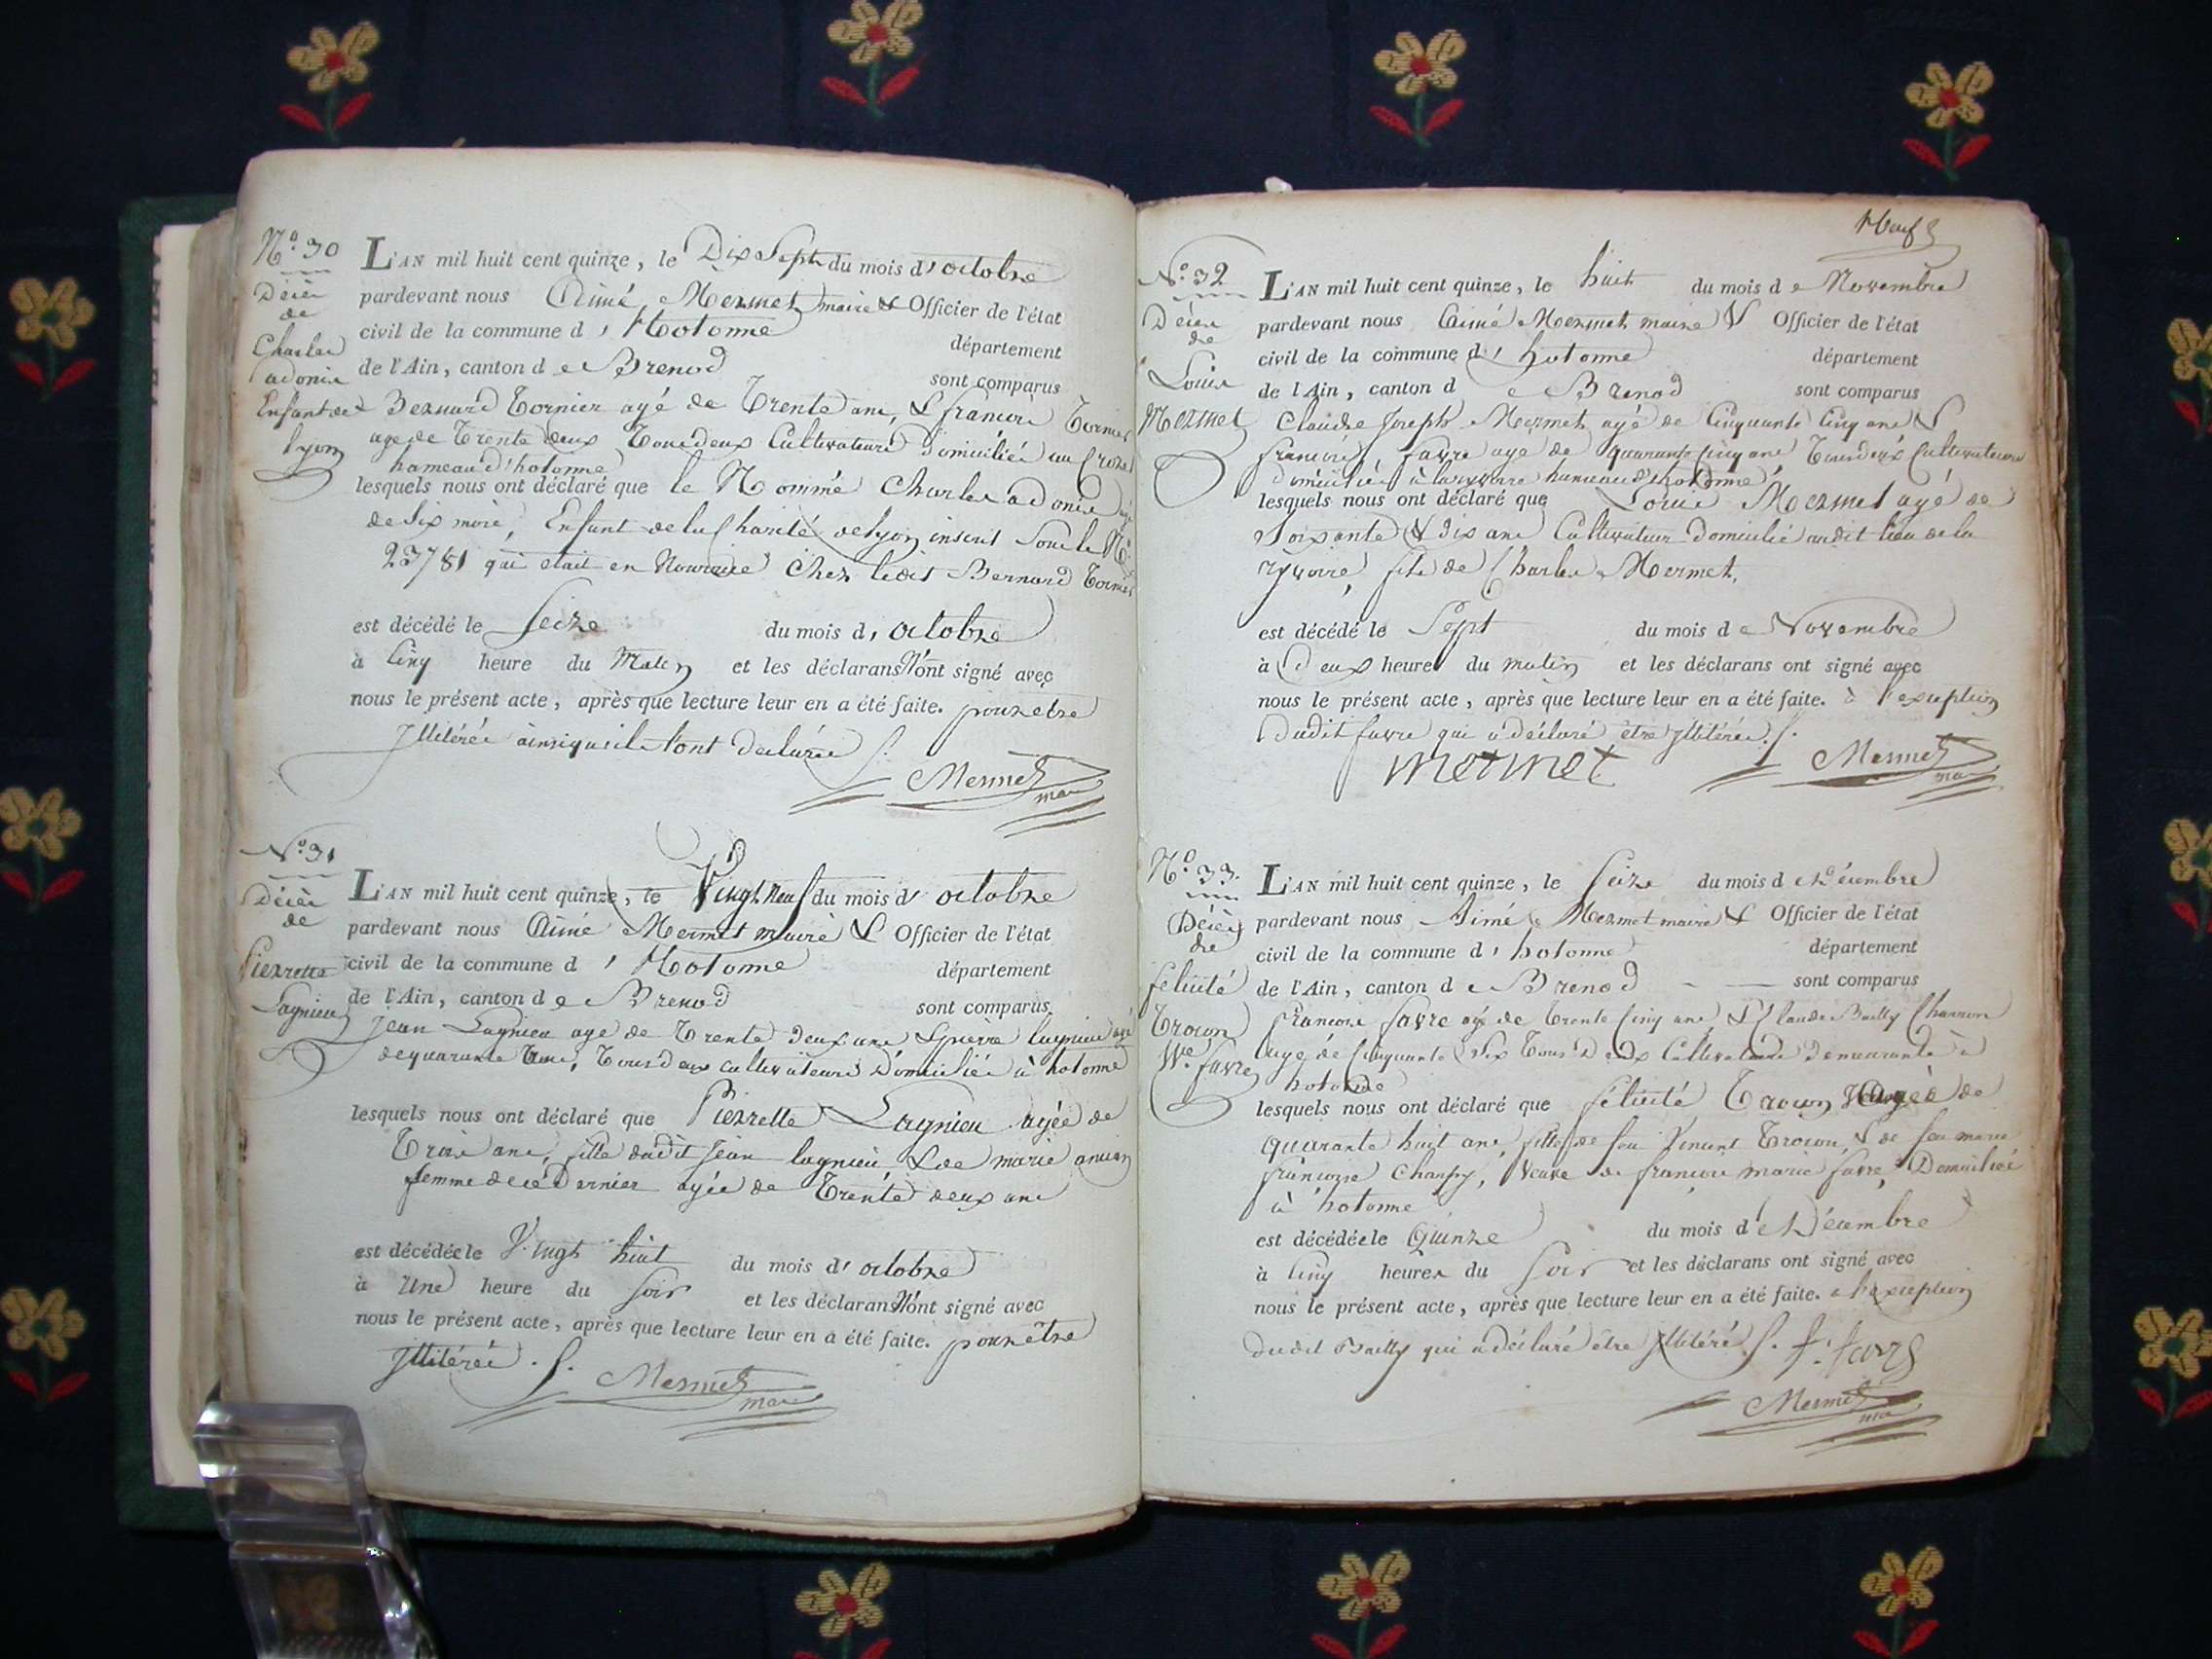 N.o 30
Décès
de
Charles
adonis
Enfant de
lyon
L'AN mil huit cent quinze, le Dix Sept du mois d'octobre
pardevant nous Aimé Mermet maire & Officier de l'état
civil de la commune d'Hotonne département
de l'Ain, canton de Brenod sont comparus
Bernard Tornier agé de Trente ans, & francois Tornier
age de Trente deux Tous deux Cultivateurs Domiciliés au Crozet
hameau d'hotonne
lesquels nous ont déclaré que le Nommé Charles adonis agé
de Six mois, Enfant de la Charité de lyon inscrit Sous le No.
23781 qui etait en Nourrice Chez ledit Bernard Tornier
est décédé le Seize du mois d'octobre
à Cinq heure du Matin et les déclarans N'ont signé avec
nous le présent acte, après que lecture leur en a été faite. pour etre
Illitérés ainsi qu'ils l'ont declarés
Mermet
maire
N.o 31
Décès
de
Pierrette
Lagnieu
L'AN mil huit cent quinze, le Vingt Neuf du mois d'octobre
pardevant nous Aimé Mermet maire & Officier de l'état
civil de la commune d'Hotonne département
de l'Ain, canton de Brenod sont comparus
Jean Lagnieu age de Trente Deux ans & pierre lagnieu agé
de quarante Tous deux cultivateurs Domiciliés à hotonne
lesquels nous ont déclaré que Pierrette Lagnieu agée de
Trois ans, fille dudit Jean lagnieu & de marie
femme de ce Dernier agée de Trente deux ans
est décédée le Vingt huit du mois d'octobre
à Une heure du Soir et les déclarans N'ont signé avec
nous le présent acte, après que lecture leur en a été faite. pour être
Illitérés.
Mermet
maire
Neuf
N.o 32
Décès
de
Louis
Mermet
L'AN mil huit cent quinze, le huit du mois de Novembre
pardevant nous Aimé Mermet maire & Officier de l'état
civil de la commune d'hotonne département
de l'Ain, canton de Brenod sont comparus
Claude Joseph Mermet agé de Cinquante Cinq ans &
francois favre age de quarante Cinq ans Tous deux Cultivateurs
Domiciliés à la ryvoire hameau d'hotonne
lesquels nous ont déclaré que Louis Mermet agé de
Soixante & dix ans Cultivateur Domicilié audit lieu de la
ryvoire, fils de Charles Mermet,
est décédé le Sept du mois de Novembre
à Deux heures du matin et les déclarans ont signé avec
nous le présent acte, après que lecture leur en a été faite. à l'exception
dudit favre qui a déclaré être Illitéré.
mermet
Mermet
maire
N.o 33.
Décès
de
felicité
Trocon
Ve. favre
L'AN mil huit cent quinze, le Seize du mois de Décembre
pardevant nous Aimé Mermet maire & Officier de l'état
civil de la commune d'hotonne département
de l'Ain, canton de Brenod sont comparus
francois favre agé de Trente Cinq ans, & Claude Bailly Charron
age de Cinquante Six Tous Deux Cultivateurs Demeurants à
hotonne
lesquels nous ont déclaré que felicité Trocon agée de
quarante huit ans, fille de feu Vincent Trocon, & de feu marie
francoise Veuve de francois marie favre, Domiciliée
à hotonne
est décédée le Quinze du mois de Décembre
à Cinq heures du Soir et les déclarans ont signé avec
nous le présent acte, après que lecture leur en a été faite. a l'exception
dudit Bailly qui a déclaré être Illitéré. f. favre
Mermet
maire